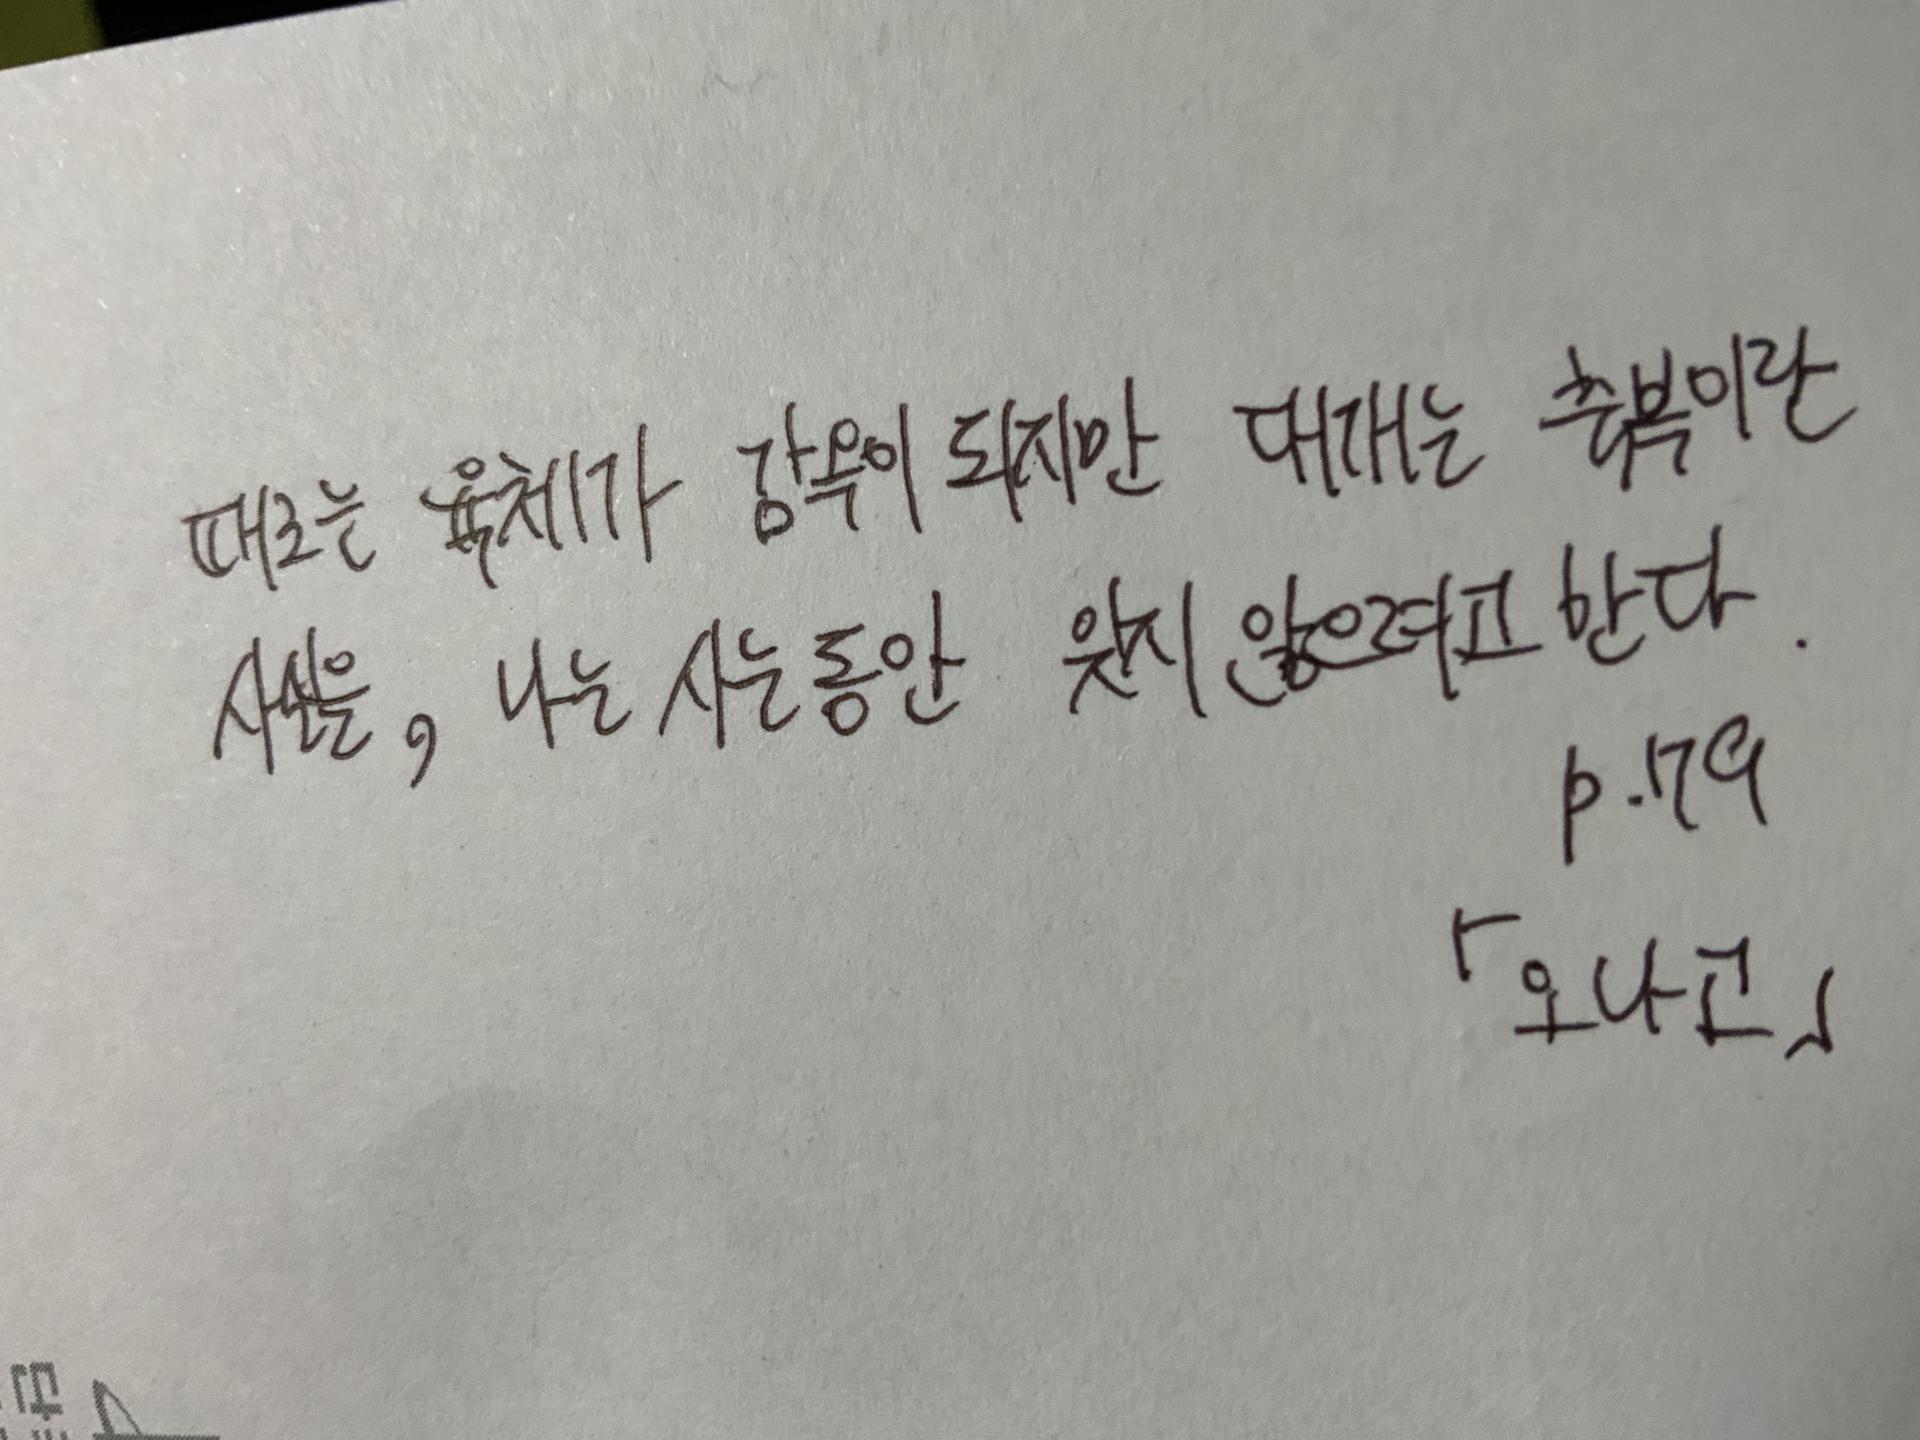 때로는 육체가 감옥이 되지만 대개는 축복이란
사실을, 나는 사는동안 잊지 않으려고 한다.
p.179
「오나고」